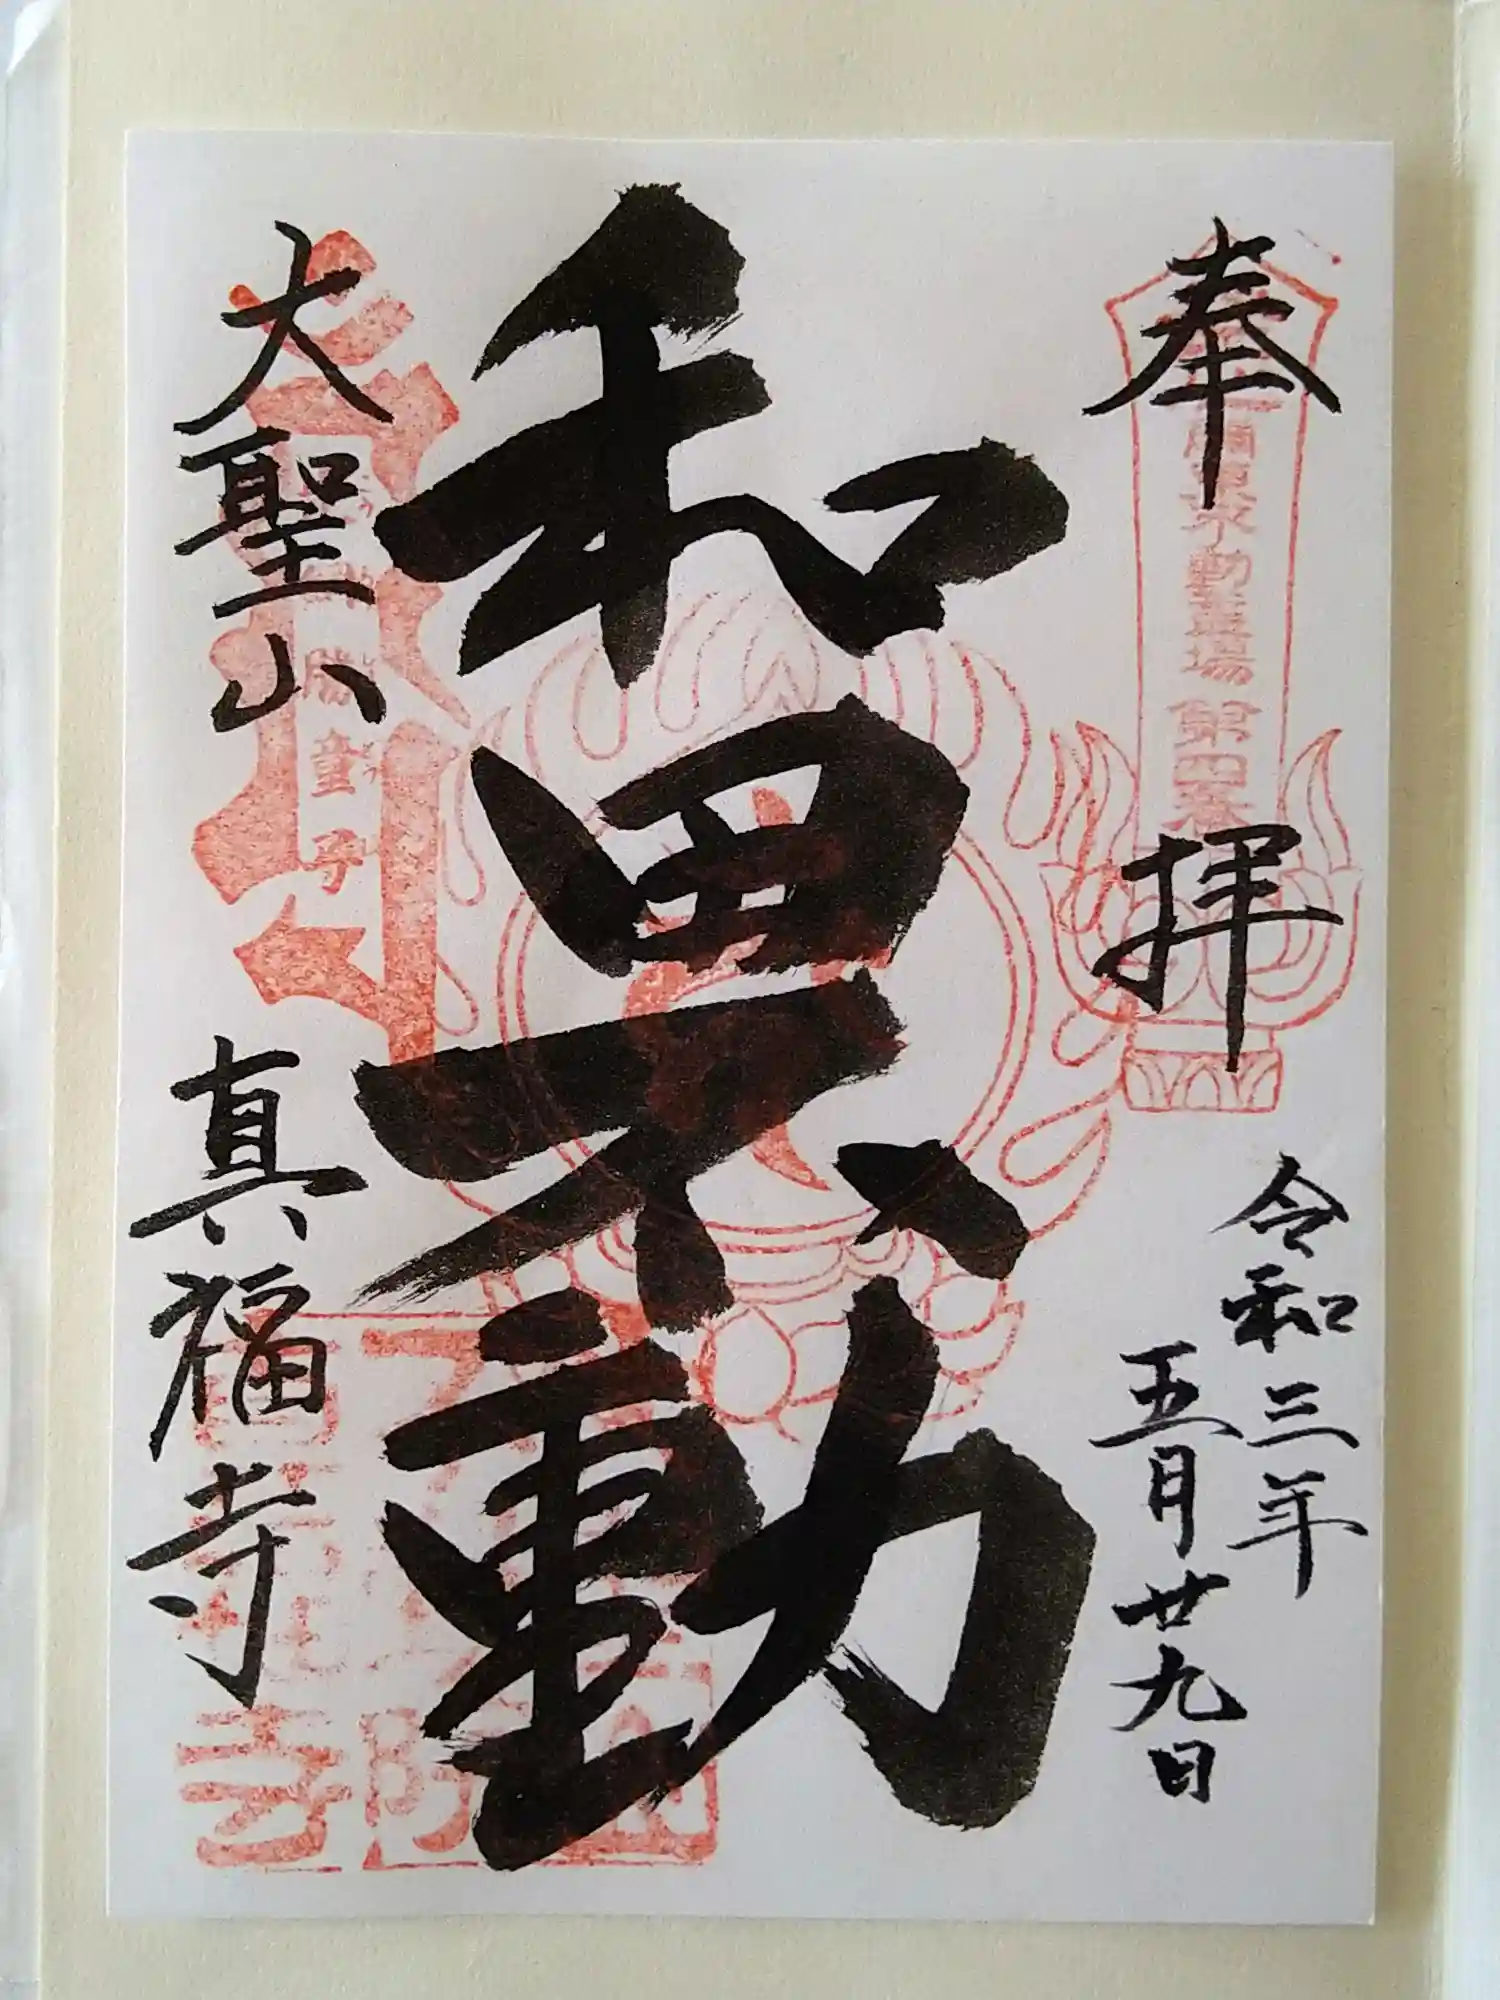 奉拝
令和三年
五月廿九日
和黒不動
大聖山
真福寺
関東
不動霊場 第四番
勝童子